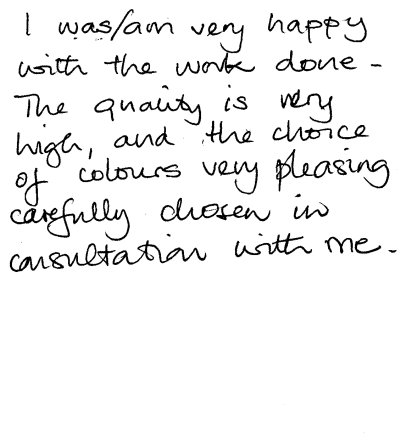 I was/am very happy
with the work done -
The quality is very
high, and the choice
of colours very pleasing
carefully chosen in
consultation with me.